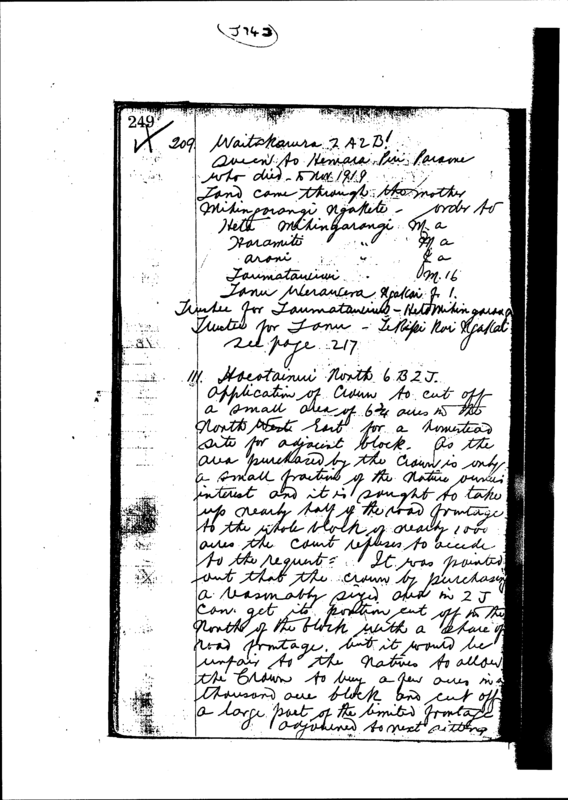 J742
249
209 Waitakaruru 2 A2B1
Succn to Hemara Piri Paraone
who died - 5 Nov 1919
Land came through the mother
Mihingarangi Ngakete - order to
Heta Mihingarangi M a
Haramite " M a
Aroni " f a
Taumatauiui " M. 16
Tanu Ngakai f. 1.
Trustee for Taumatauiui - Heta Mihingarangi
Trustee for Tanu - Ngakai
See page 217
111. Hoeotainui North 6 B 2 J.
Application of Crown to cut off
a small area of 6¾ acres in the
North West East for a homestead
site for adjacent block. As the
area purchased by the Crown is only
a small fraction of the Native owners
interest and it is sought to take
up nearly half of the road frontage
to the whole block of nearly 1000
acres the Court refuses to accede
to the request = It was pointed
out that the Crown by purchasing
a reasonably sized area in 2 J
can get its portion cut off in the
North of the block with a share of
road frontage, but it would be
unfair to the Natives to allow
the Crown to buy a few acres in a
thousand acre block and cut off
a large part of the limited frontage
adjourned to next sitting